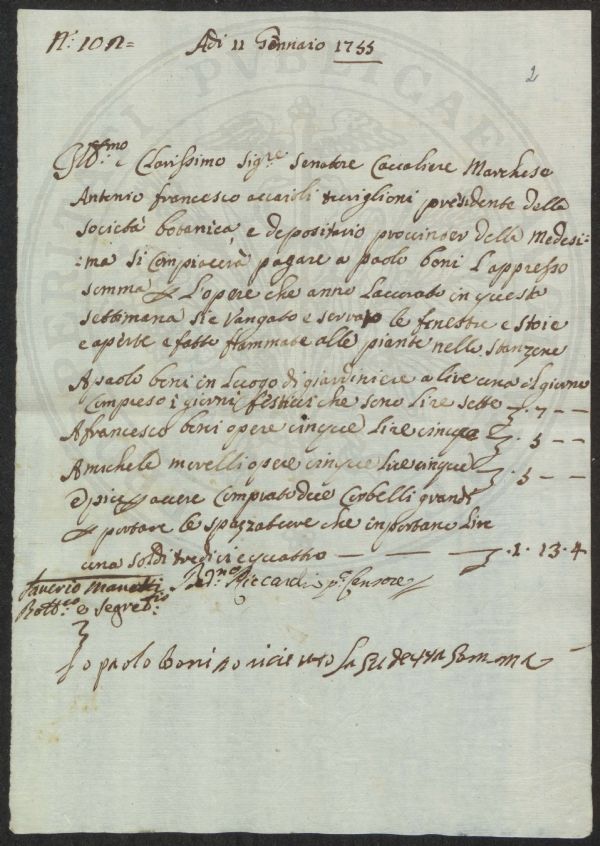 N.º 102=
Adi 11 Gennaio 1755
2
Ill.mo e Clarissimo Sig.re Senatore Cavaliere Marchese
Antonio francesco accaioli presidente della
società botanica, e depositario della Medesi=
:ma si Compiacerà pagare a paolo boni l'appresso
somma p l'opere che anno Lavorato in questa
settimana si è Vangato e serrato le finestre e stoie
e aperte e fatto fiammate alle piante nelle stanzone
A paolo boni in luogo di giardiniere a lire una il giorno
Compreso i giorni festivi che sono lire sette } · 7 — —
A francesco boni opere cinque lire cinque } · 5 — —
A michele morelli opere cinque lire cinque } · 5 — —
E piu p avere Comprato due Corbelli grandi
p portare le spazzature che inportano lire
una soldi tredici e quattro — — — } · 1 · 13 · 4
Saverio Manetti
Bott.co e Segret.rio
Riccardi p.o Censore
Io paolo Boni ho ricieuto la sudetta Somma